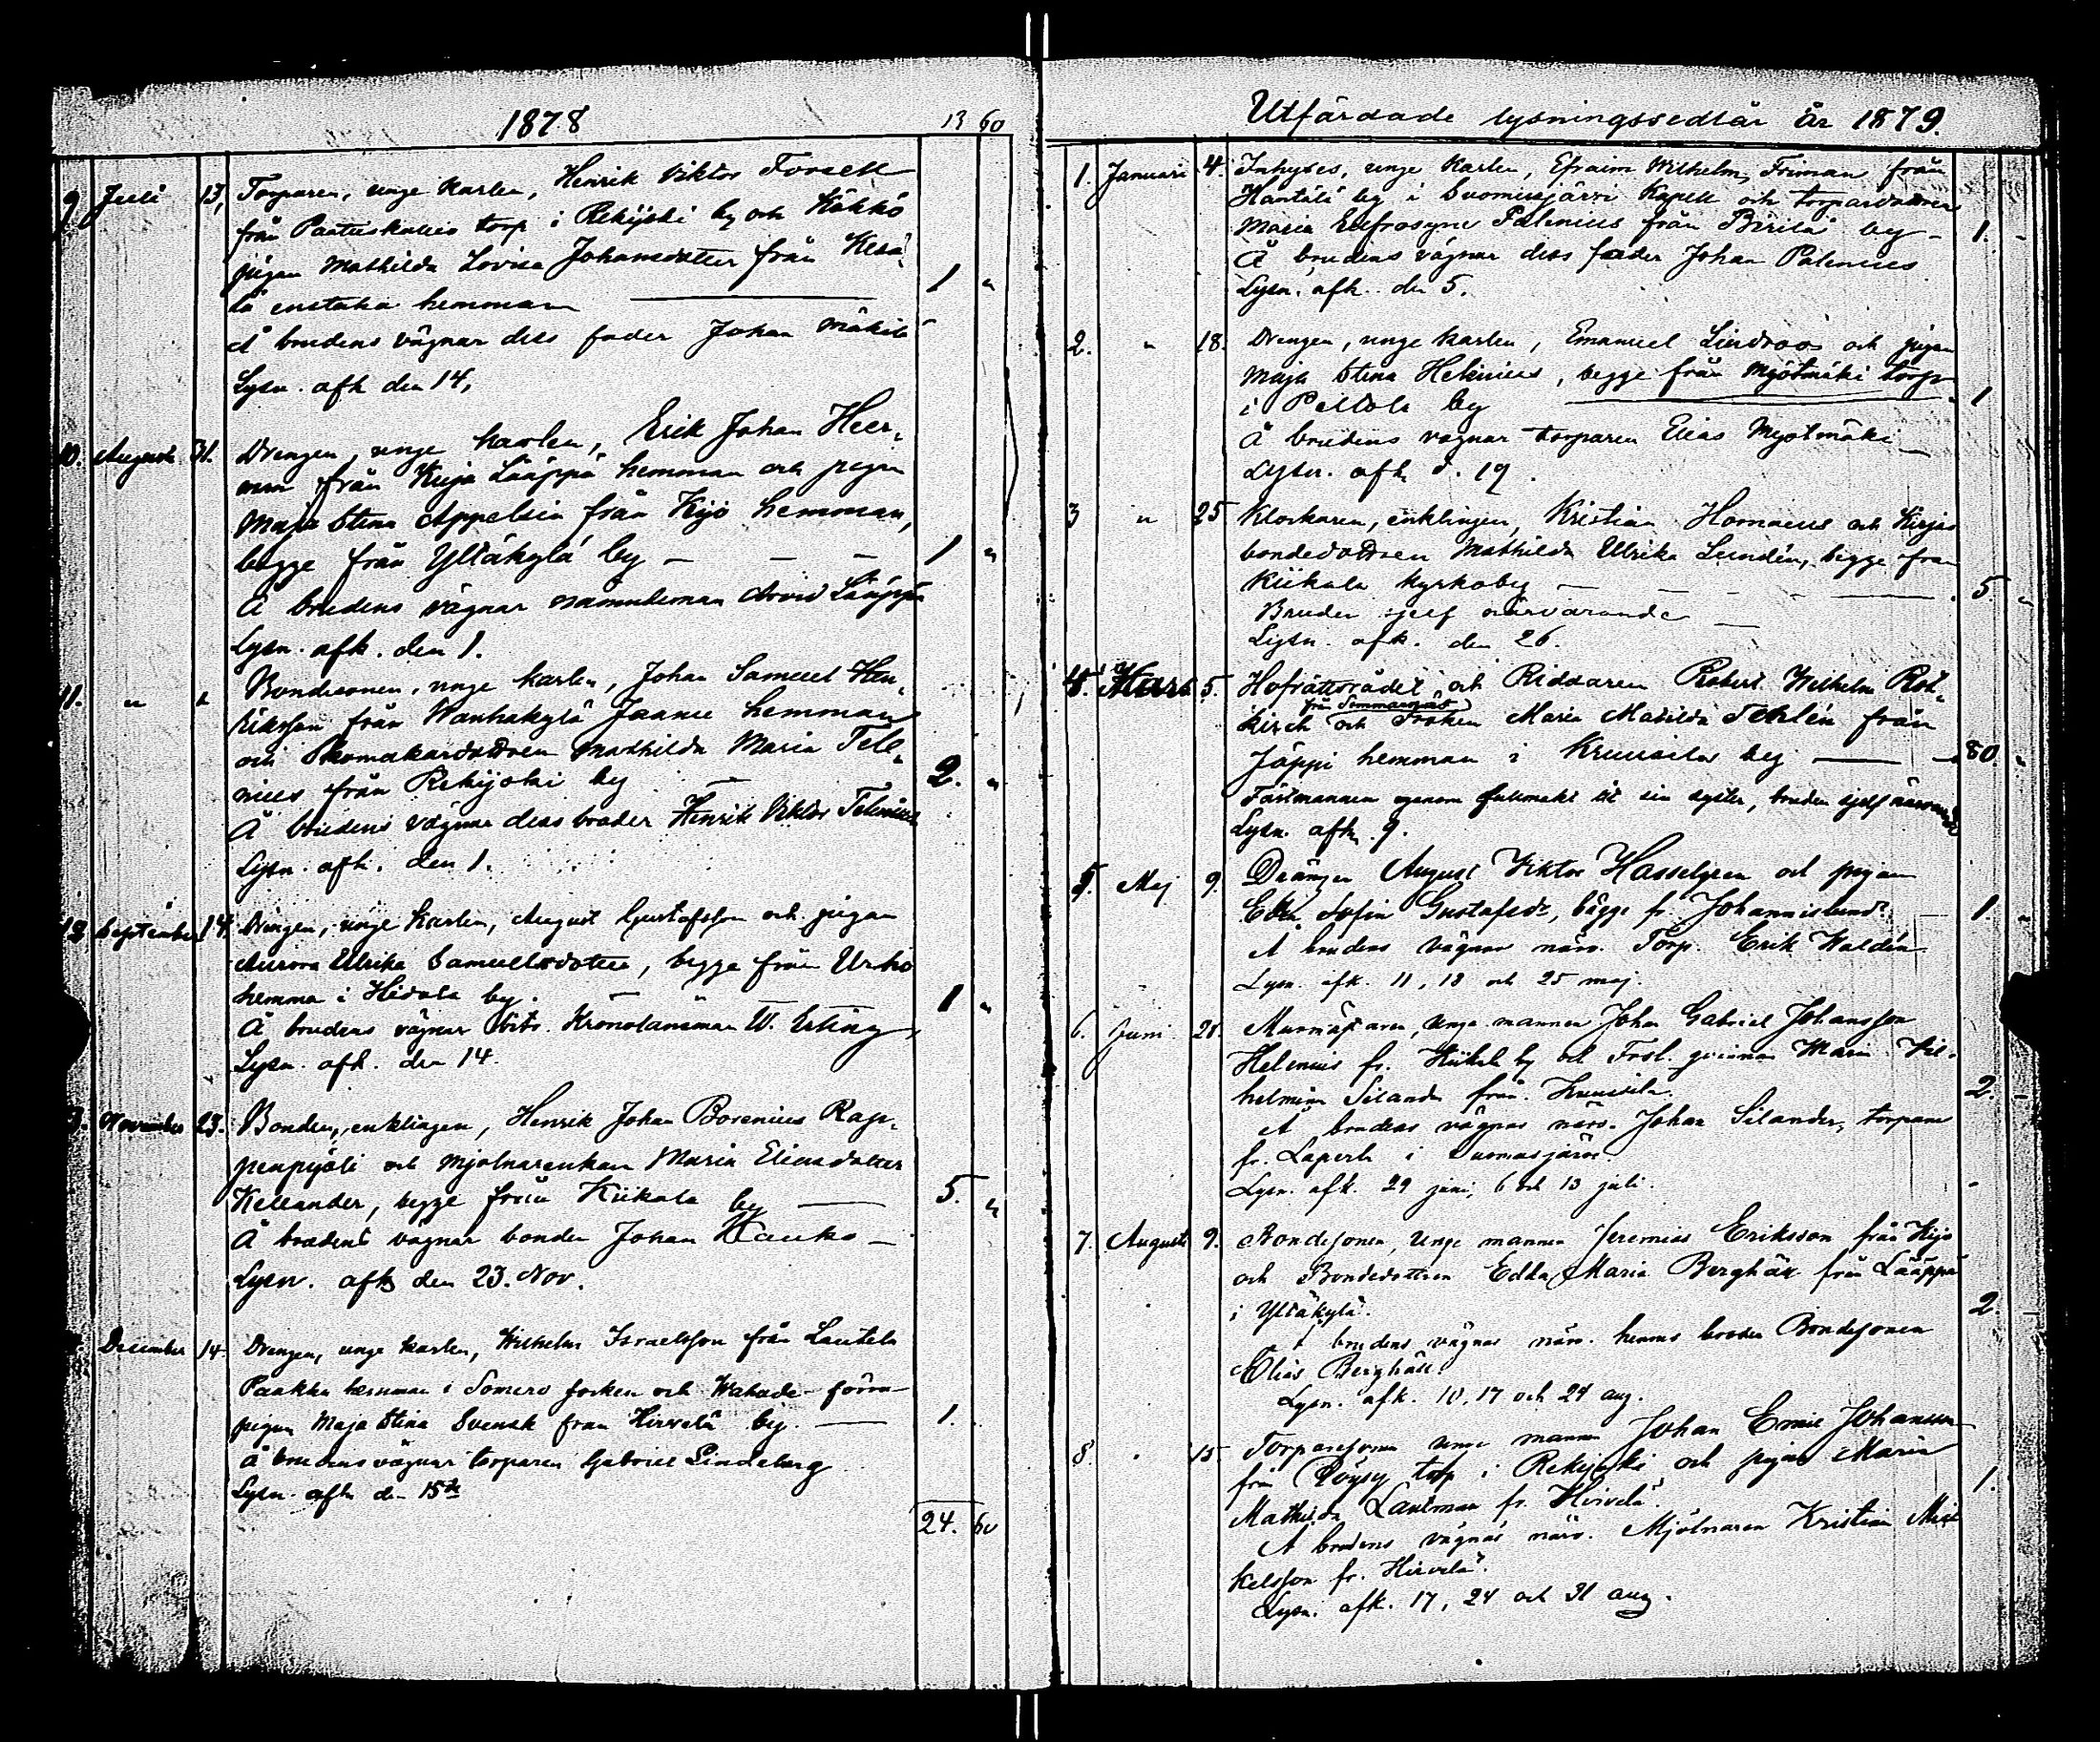 1878
13 60
9 Juli 13, Torparen, unge karlen, Henrik Viktor Forsell
från Paatuskallio torp i Rekijoki by och Kökkö
pigan Mathilda Lovisa Johansdotter från Kesä-
lä enstaka hemman 1 "
Å brudens vägnar dess fader Johan Mäkilä
Lysn. afk den 14,
10. Augusti 31. Drengen, unge karlen, Erik Johan Heer-
man från Kuja Lääppä hemman och pigan
Maja Stina Appelsin från Kijo hemman,
begge från Yltäkylä by 1 "
Å brudens vägnar nämndeman Arvid Lääppä
Lysn. afk. den 1.
11. " " Bondesonen, unge karlen, Johan Samuel Hen-
riksson från Wanhakylä Jaanu hemman
och Skomakardottren Mathilda Maria Tele-
nius från Rekijoki by 2. "
Å brudens vägnar dess broder Henrik Viktor Telenius
Lysn. afk. den 1.
12 September 14. Drengen, unge karlen, August Gustafsson och pigan
Aurora Ulrika Samuelsdotter, begge från Urho
hemman i Hidola by. 1 "
Å brudens vägnar Kronolänsman W. Erling,
Lysn. afk. den 14.
3. November 23. Bonden, enklingen, Henrik Johan Borenius Rap-
penpyöli och mjolnarenkan Maria Eliasdotter
Kellander, begge från Kiikala by 5. "
Å brudens vägnar bonden Johan Hauko
Lysn. afk den 23. Nov.
December 14. Drengen, unge karlen, Wilhelm Israelsson från Lautela
Paakka hemman i Somero socken och
pigan Maja Stina Svensk från Hirvelä by. 1.
Å brudens vägnar torparen Gabriel Lindeberg
Lysn. afk d. 15de
24. 60
Utfärdade lysningssedlar år 1879.
1. Januari 4. Inhyses, unge karlen, Efraim Wilhelm Friman från
Häntälä by i Suomusjärvi Kapell och torpardottren
Maria Eufrosyne Palenius från Pirilä by 1. "
Å brudens vägnar dess fader Johan Palenius
Lysn. afk. den 5.
2. " 18. Drengen, unge karlen, Emanuel Lindroos och pigan
Maja Stina Helenius, begge från Myötmäki torp
i Peltola by 1
Å brudens vägnar torparen Elias Myötmäki
Lysn. afk. d. 19.
3 " 25 Klockaren, enklingen, Kristian Homaeus och
bondedottren Mathilda Ulrika Lundén, begge från
Kiikala kyrkoby 5. "
Bruden sjelf närvarande
Lysn. afk. den 26.
4. Mars 5. Hofrättsrådet och Riddaren Robert Wilhelm Rot-
från Sommarnäs
kirch och Fröken Maria Matilda Tehlén från
Jäppi hemman i Kruusila by 80. "
Fästmannen genom fullmakt till sin syster, bruden sjelf närvarande
Lysn. afk. 9.
5. Maj 9. Drängen August Viktor Hasselgren och pigan
Edla Sofia Gustafsdr, bägge fr. Johannislund 1. "
Å brudens vägnar närv. Torp. Erik Waldén
Lysn. afk. 11, 18 och 25 maj.
6. Juni 28. unge mannen Johan Gabriel Johansson
Helenius fr. Kiikala by och Frsk. qvinnan Maria Vil-
helmina Silander från Kruusila. 2.
Å brudens vägnar närv. Johan Silander, torpare
fr. Laperla i Suomusjärvi.
Lysn. afk. 29 juni, 6 och 13 juli.
7. Augusti 9. Bondesonen, Unge mannen Jeremias Eriksson från Kijo
och Bondedottren Edla Maria Berghäll från Lääppä
i Yltäkylä. 2.
Å brudens vägnar närv. hennes broder Bondesonen
Elias Berghäll.
Lysn. afk. 10, 17 och 24 aug.
8. " 15. Torparesonen unge mannen Johan Emil Johansson
från Pöysy torp i Rekijoki och pigan Maria
Mathilda Lautman fr. Hirvelä. 1.
Å brudens vägnar närv. Mjölnaren Kristian Mic-
kelsson fr. Hirvelä.
Lysn. afk. 17, 24 och 31 aug.